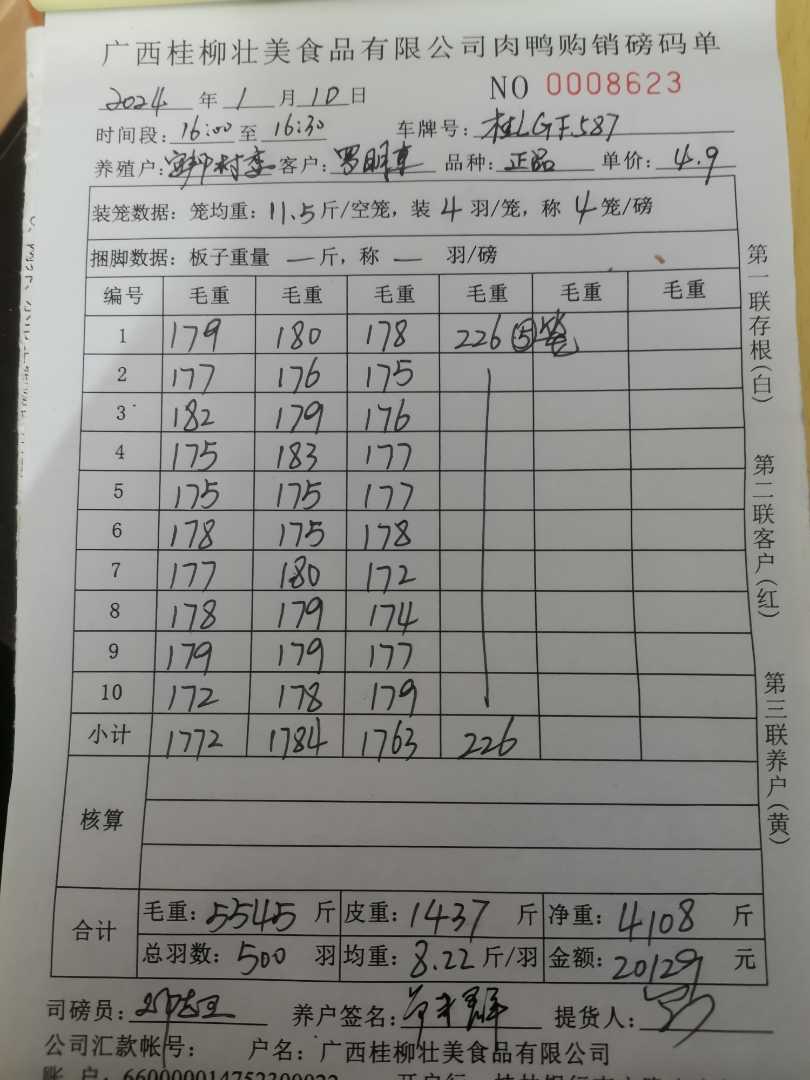 广西桂柳壮美食品有限公司肉鸭购销磅码单
2024 年 1 月 10 日 NO 0008623
时间段: 16:00 至 16:30 车牌号: 桂LGF587
养殖户: 村李 客户: 罗明 品种: 正品 单价: 4.9
装笼数据: 笼均重: 11.5 斤/空笼, 装 4 羽/笼, 称 4 笼/磅
捆脚数据: 板子重量 — 斤, 称 — 羽/磅
编号 毛重 毛重 毛重 毛重 毛重 毛重
1 179 180 178 226 ⑤笼
2 177 176 175
3 182 179 176
4 175 183 177
5 175 175 177
6 178 175 178
7 177 180 172
8 178 179 174
9 179 179 177
10 172 178 179
小计 1772 1784 1763 226
核算
合计
毛重: 5545 斤 皮重: 1437 斤 净重: 4108 斤
总羽数: 500 羽 均重: 8.22 斤/羽 金额: 20129 元
司磅员: 养户签名: 提货人:
公司汇款帐号: 户名: 广西桂柳壮美食品有限公司
账 户: 660000014752300022 开户行:
第一联存根(白)
第二联客户(红)
第三联养户(黄)